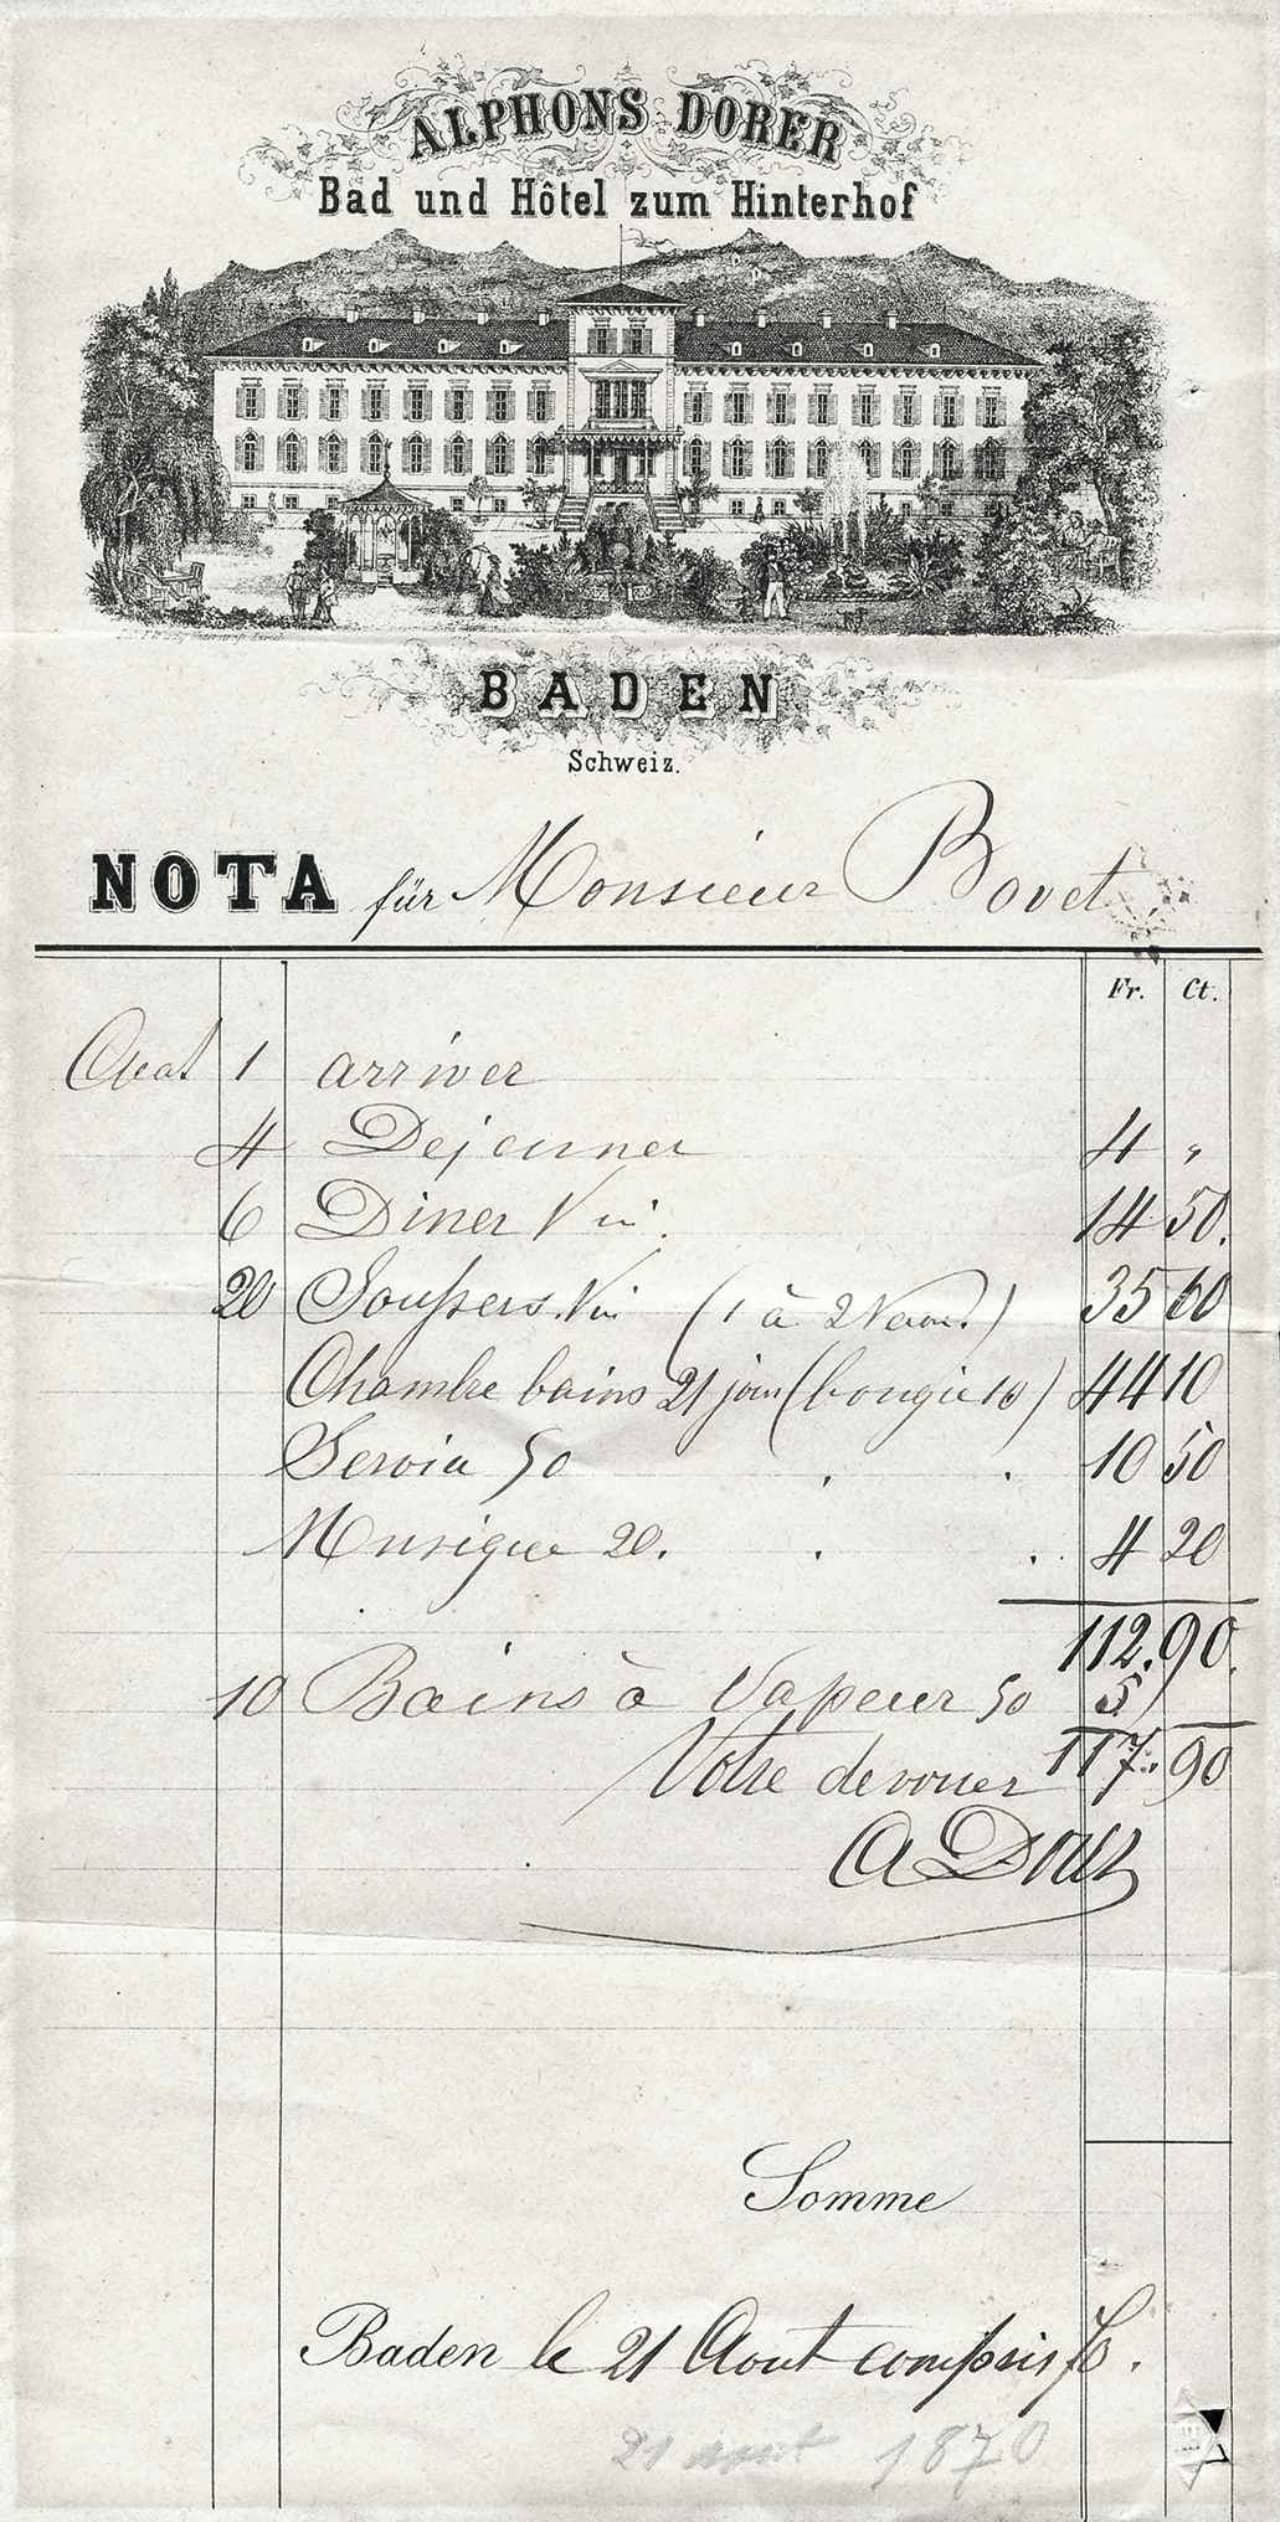 ALPHONS DORER
Bad und Hôtel zum Hinterhof
BADEN
Schweiz.
NOTA für Monsieur Bovet
Fr. Ct.
Aout 1 arriver
4 Dejeuner 4 "
6 Diner Vin 14 50.
20 Soupers Vin (1 à 2 ) 35 60
Chambre bains 21 jour (bougie 10) 44 10
Servic 50 . . 10 50
Musique 20. . . 4 20
112.90.
10 Bains à Vapeur 50 5
Votre devouer 117.90
A Dorer
Somme
Baden le 21 Aout compris
21 aout 1870